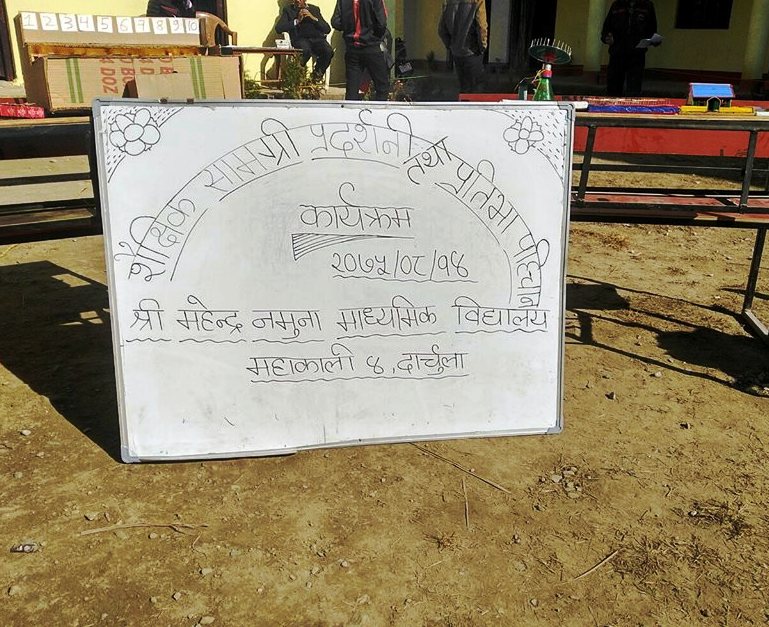 1 2 3 4 5 6 7 8 9 10
शैक्षिक सामग्री प्रदर्शनी तथा प्रतिभा पहिचान
कार्यक्रम
२०७५/०८/१४
श्री महेन्द्र नमुना माध्यमिक विद्यालय
महाकाली ४, दार्चुला